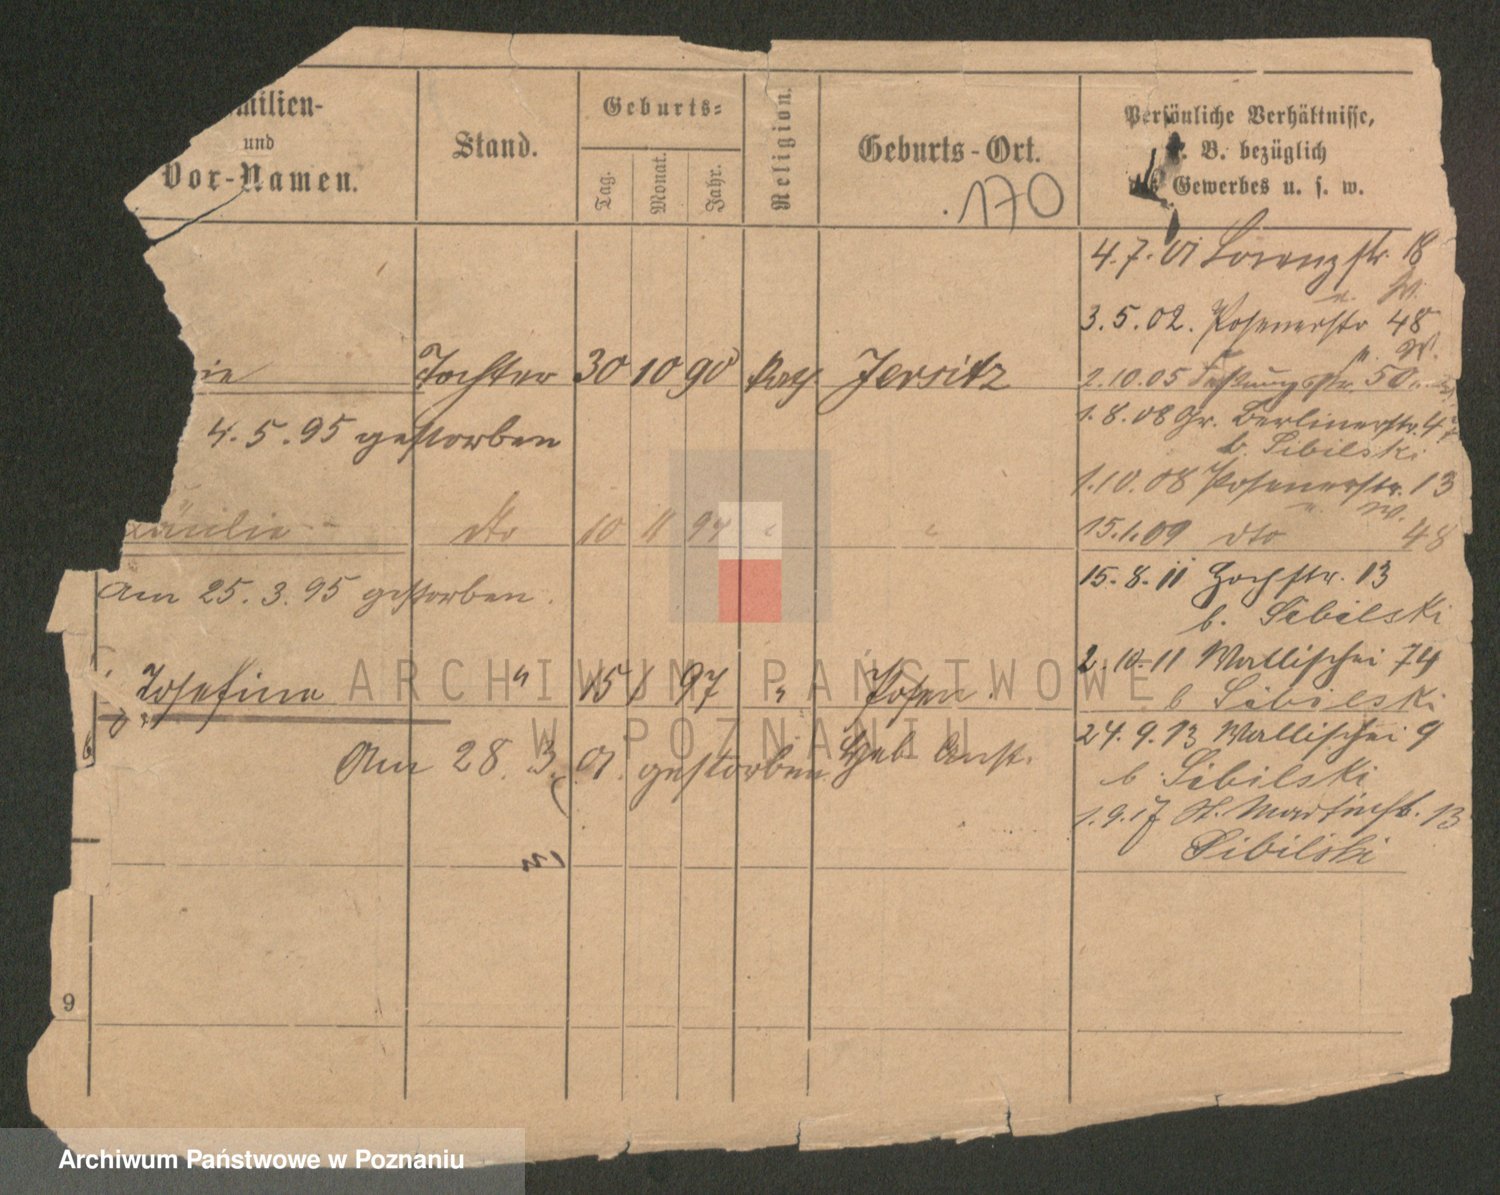 milien-
und
Vor-Namen.
Stand.
Geburts=
Tag.
Monat.
Jahr.
Religion.
Geburts-Ort.
170
Persönliche Verhältnisse,
z. B. bezüglich
des Gewerbes u. s. w.
4.7.01 Lorenzstr. 18
3.5.02. Posenerstr 48
u. W.
ie Tochter 30 10 90 Jersitz
2.10.05 Festungsstr. 50
4.5.95 gestorben
1.8.08 Gr. Berlinerstr. 4
b. Sibilski
1.10.08 Posenerstr. 13
dto 10 11 94 "
15.1.09 dto 48
Am 25.3.95 gestorben.
15.8.11 Hochstr. 13
b. Sibilski
Josefina " 15 1 97 " Posen.
2.10.11 Wallischei 74
b Sibilski
Am 28.3.01. gestorben Geb. Anst.
24.9.13 Wallischei 9
b. Sibilski
1.9.17 St. Martinstr. 13
Sibilski
9
ARCHIWUM PAŃSTWOWE
W POZNANIU
Archiwum Państwowe w Poznaniu